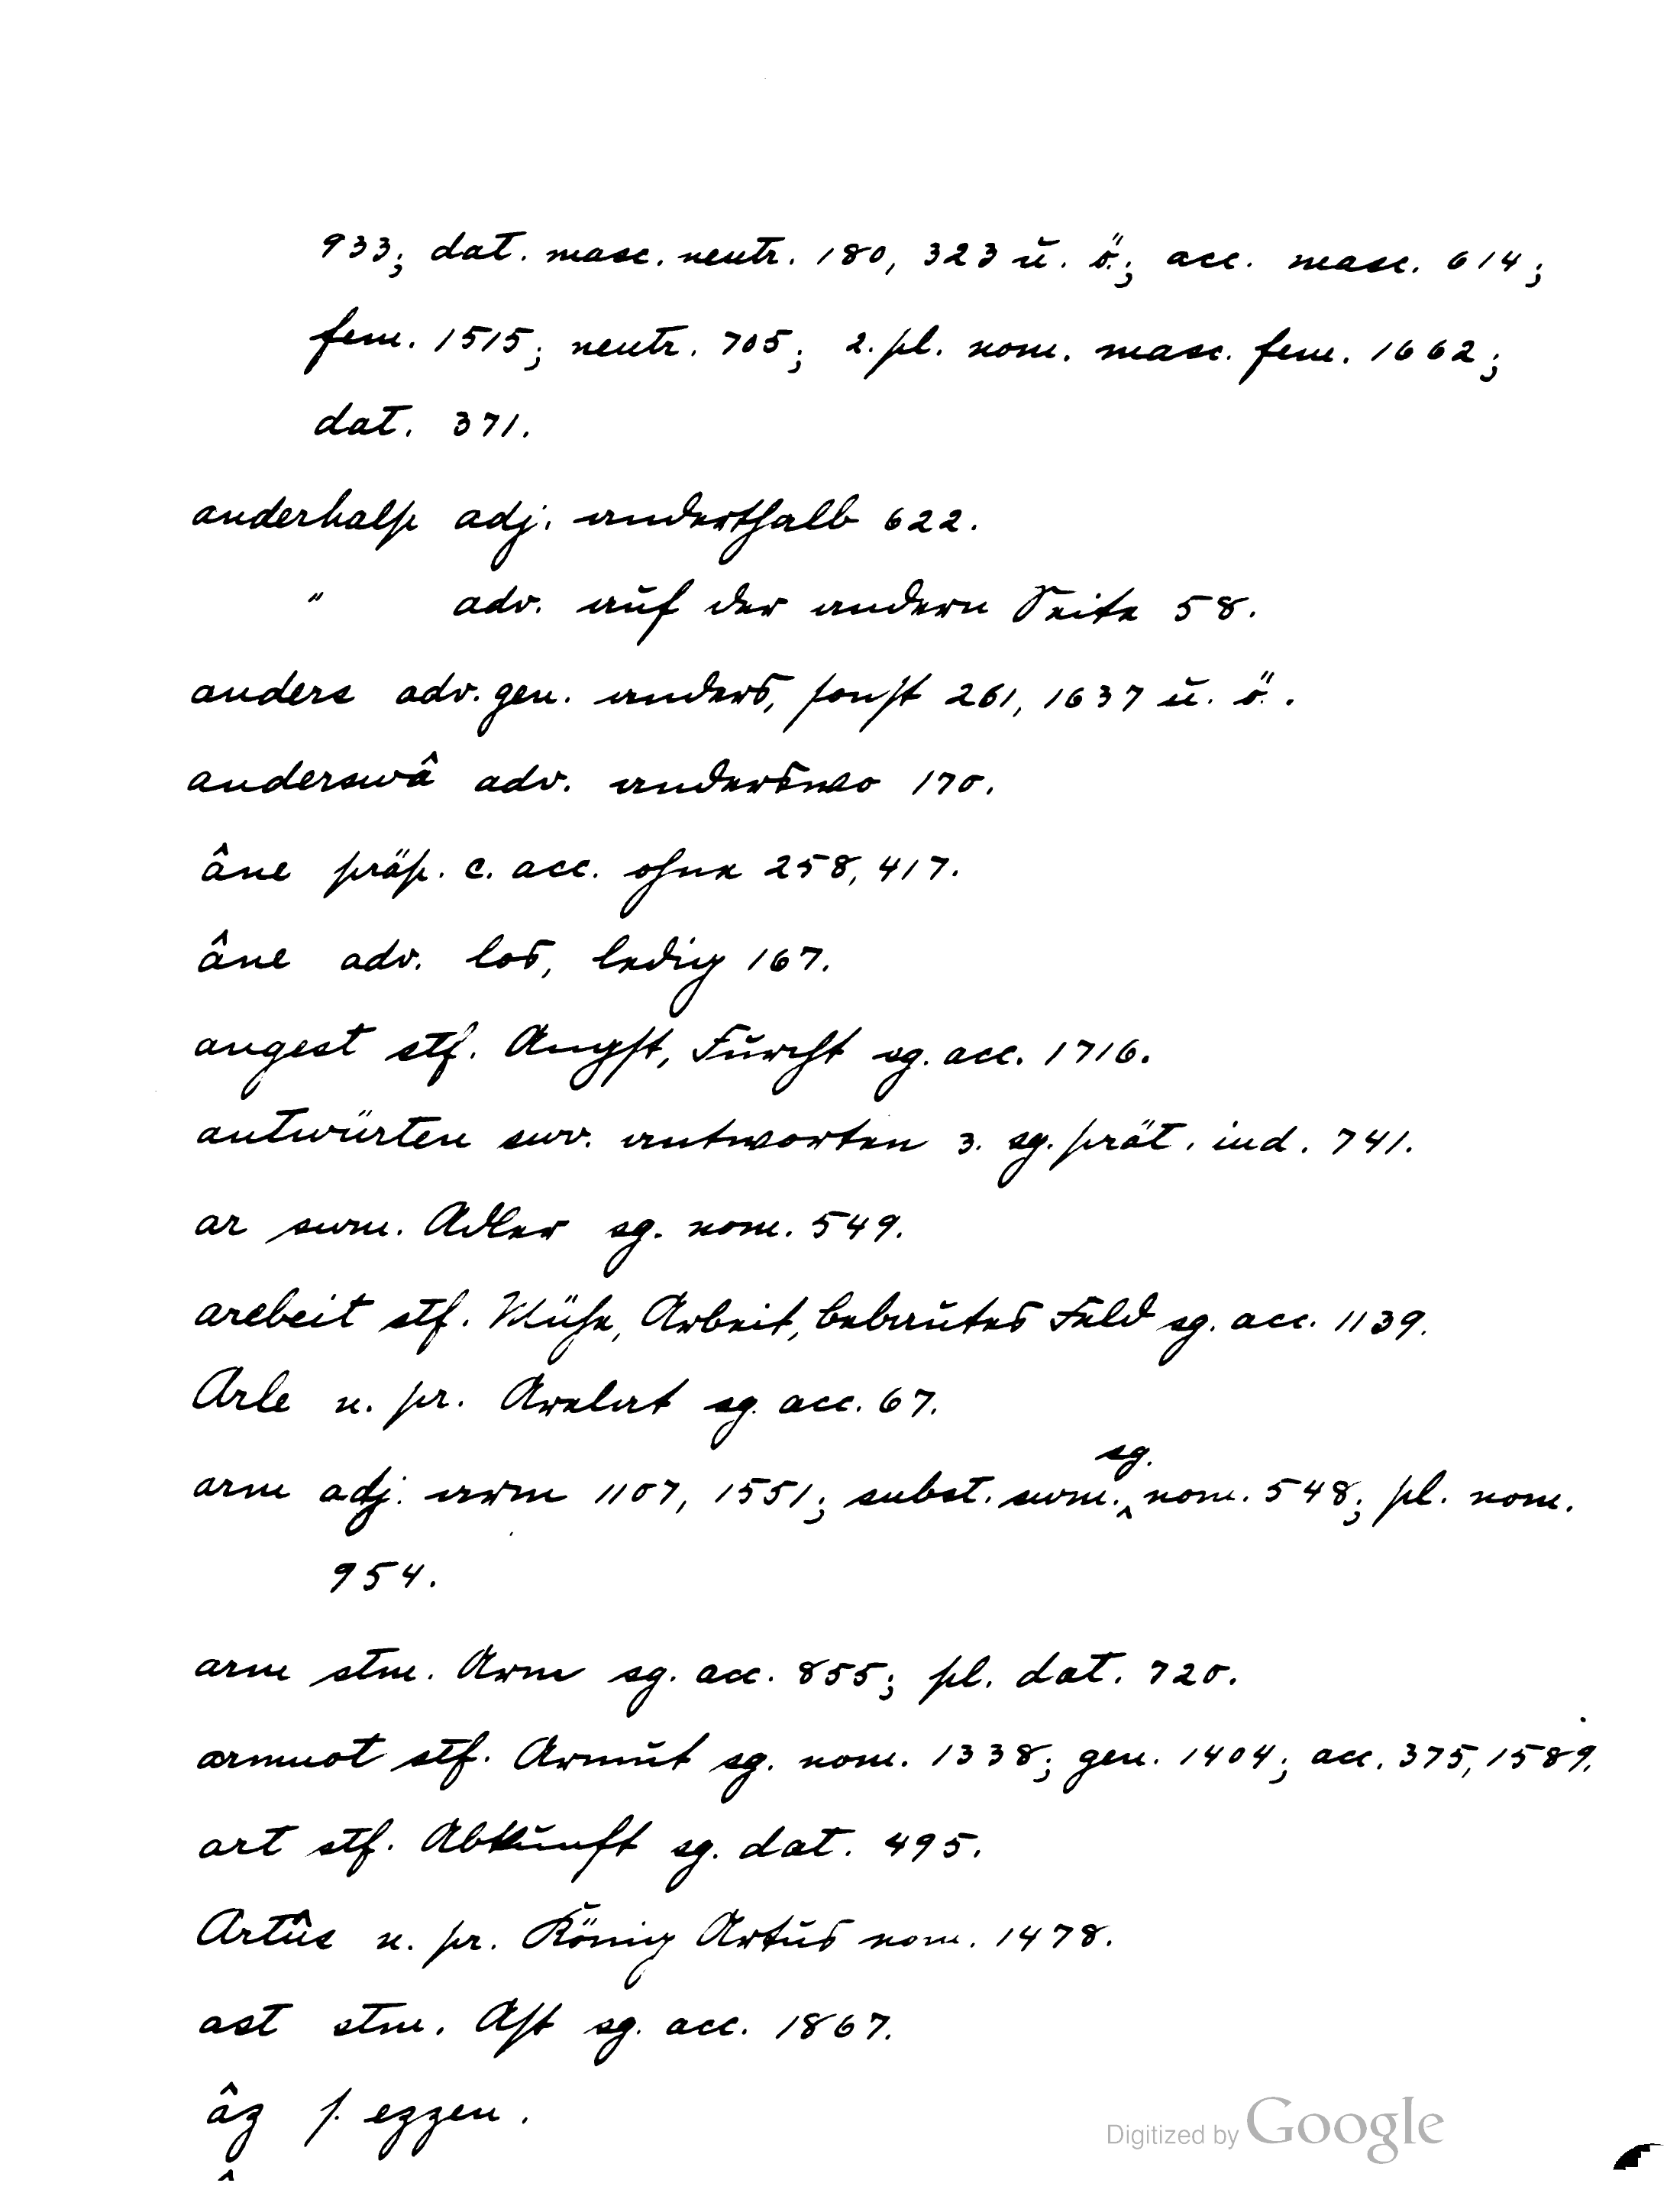 933; dat. masc. neutr. 180, 323 u. ö.; acc. masc. 614;
fem. 1515; neutr. 705; 2. pl. nom. masc. fem. 1662;
dat. 371.
anderhalp adj. anderthalb 622.
" adv. auf der andern Seite 58.
anders adv. gen. anders, sonst 261, 1637 u. ö.
anderswâ adv. anderswo 170.
âne präp. c. acc. ohne 258, 417.
âne adv. los, ledig 167.
angest stf. Angst, Furcht sg. acc. 1716.
antwürten swv. antworten 3. sg. prät. ind. 741.
ar swm. Adler sg. nom. 549.
arebeit stf. Mühe, Arbeit, bebautes Feld sg. acc. 1139.
Arle n. pr. Arelat sg. acc. 67.
arm adj. arm 1107, 1551; subst. swm. sg. nom. 548; pl. nom.
954.
arm stm. Arm sg. acc. 855; pl. dat. 720.
armuot stf. Armut sg. nom. 1338; gen. 1404; acc. 375, 1589.
art stf. Abkunft sg. dat. 495.
Artûs n. pr. König Artus nom. 1478.
ast stm. Ast sg. acc. 1867.
âz s. ezzen.
Digitized by Google